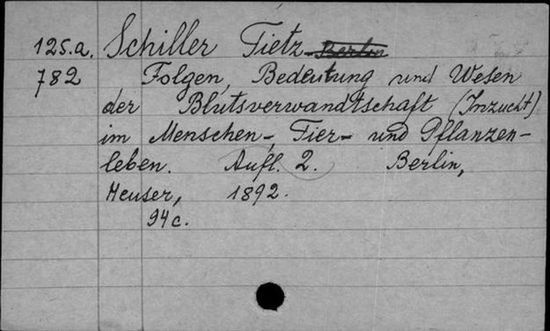 125.a. Schiller Tietz Berlin
782 Folgen, Bedeutung und Wesen
der Blutsverwandtschaft (Inzucht)
im Menschen-, Tier- und Pflanzen-
leben. Aufl. 2. Berlin,
Heuser, 1892.
94c.